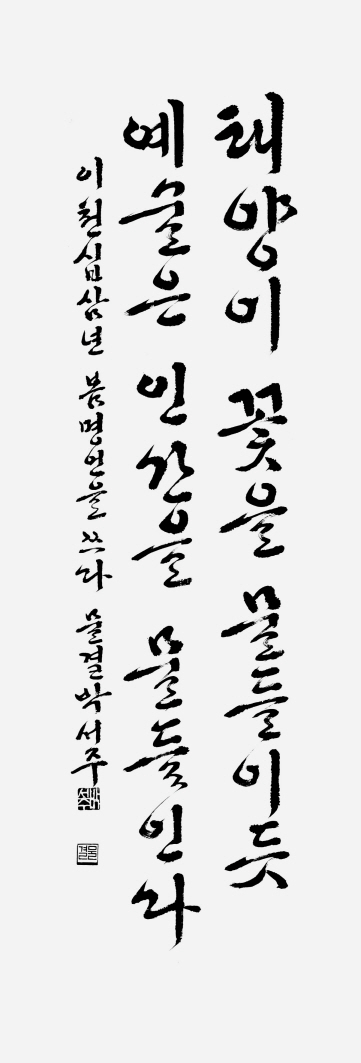 태양이 꽃을 물들이듯
예술은 인간을 물들인다
이천십삼년 봄 명언을 쓰다 물결 박서주